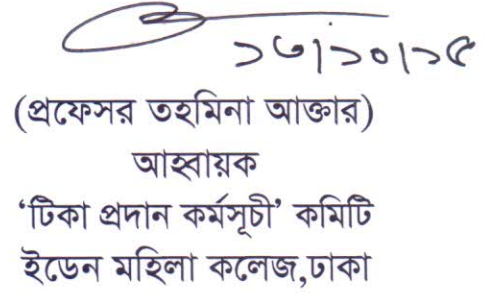 ১৩|১০|১৫
(প্রফেসর তহমিনা আক্তার)
আহ্বায়ক
‘টিকা প্রদান কর্মসূচী’ কমিটি
ইডেন মহিলা কলেজ,ঢাকা